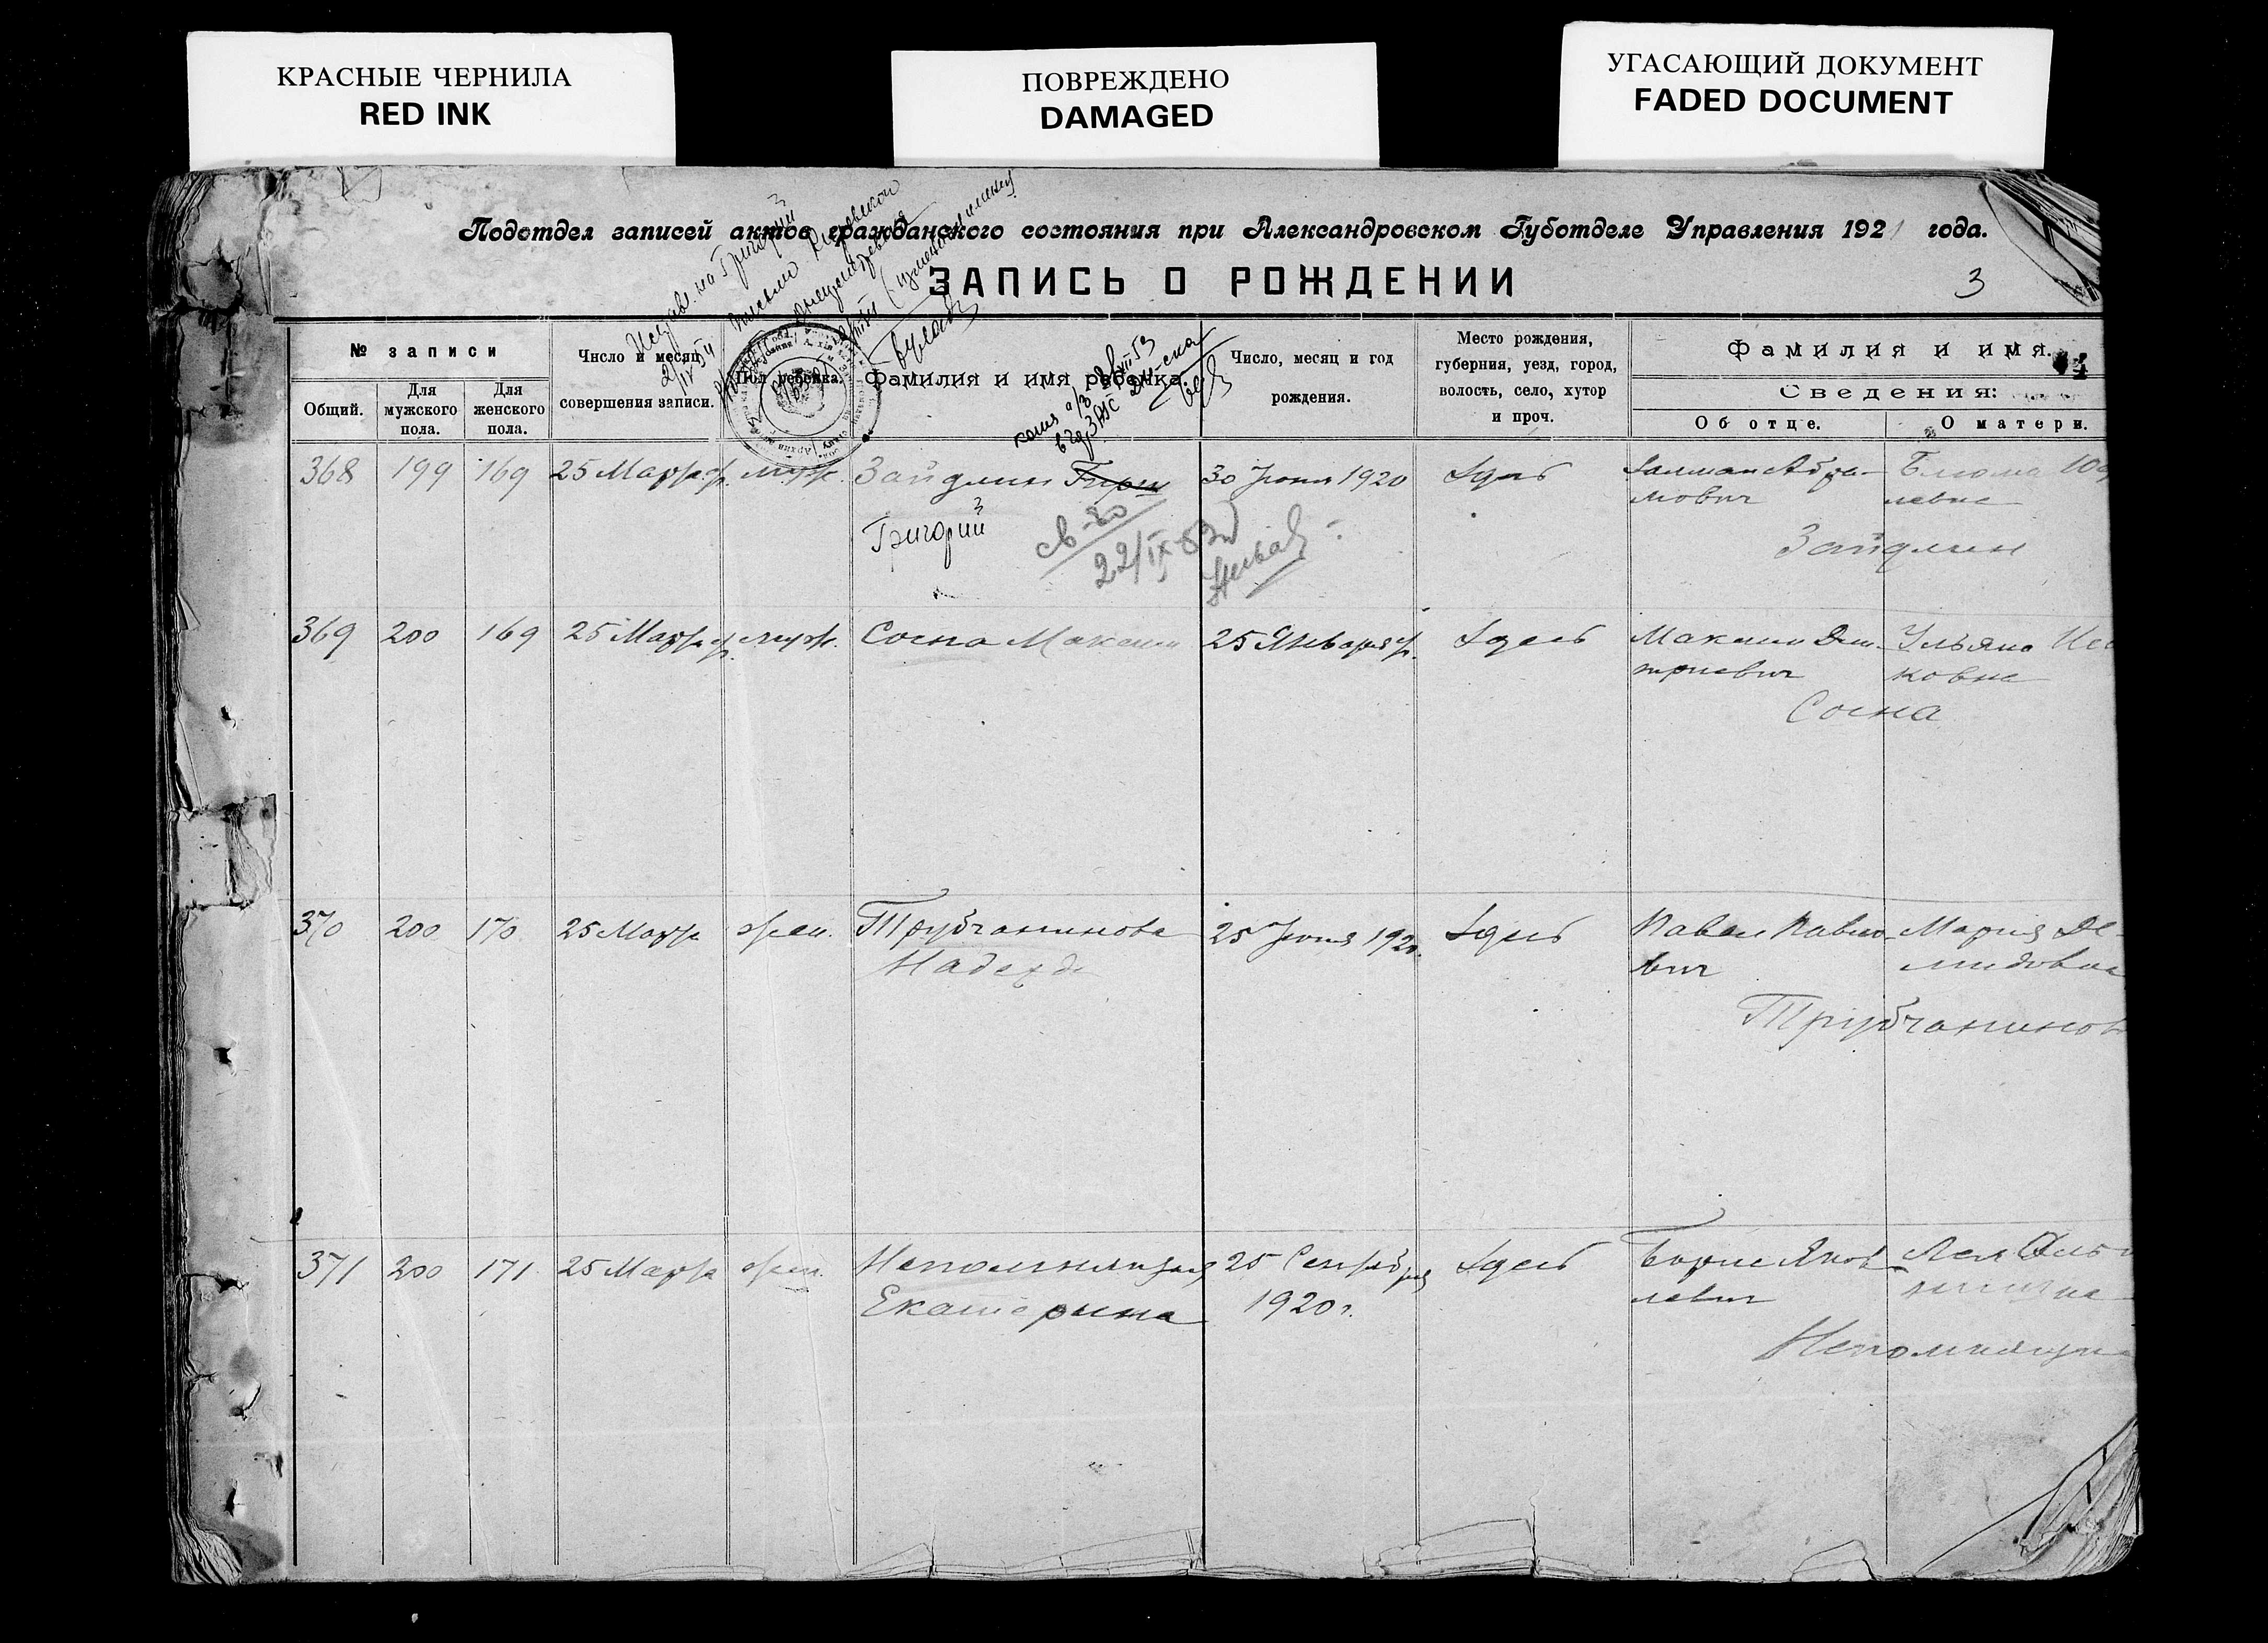 КРАСНЫЕ ЧЕРНИЛА
RED INK
ПОВРЕЖДЕНО
DAMAGED
УГАСАЮЩИЙ ДОКУМЕНТ
FADED DOCUMENT
Подотдел записей актов гражданского состояния при Александровском Губотделе Управления 1921 года.
ЗАПИСЬ О РОЖДЕНИИ
3
Исправ. на Григорий
№ записи
Общий.
Для мужского пола.
Для женского пола.
Число и месяц совершения записи.
Пол ребенка.
Фамилия и имя ребенка.
Число, месяц и год рождения.
Место рождения, губерния, уезд, город, волость, село, хутор и проч.
Фамилия и имя.
Сведения:
Об отце.
О матери.
368 199 169 25 Марта муж. Зайдлин Гирш 30 Июня 1920 Здесь Залман Абра- Блюма
мович левна
Григорий
Зайдлин
св-во
22/IX-53
369 200 169 25 Марта муж. Сосна Максим 25 Января Здесь Максим Дми- Ульяна
триевич ковна
Сосна
370 200 170 25 Марта жен. Трубчанинова 25 Июня 1920 Здесь Павел Павло- Мария Де-
Надежда вич мидовна
Трубчанинов
371 200 171 25 Марта жен. Непомнящая 25 Сентября Здесь Борис Яков- Лея
Екатерина 1920 г. левич
Непомнящи